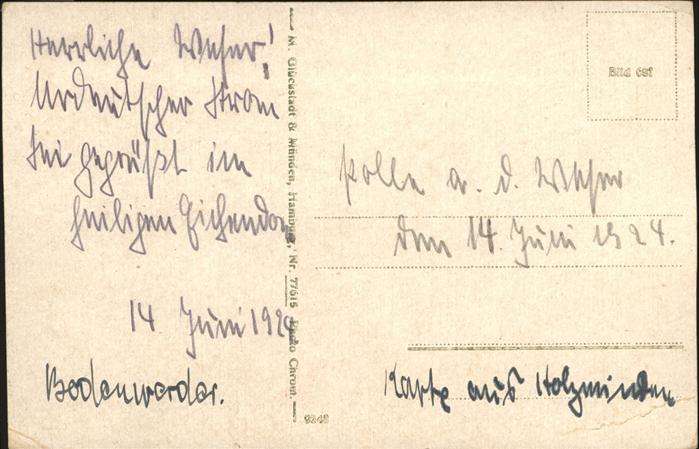 Herrliche Weser!
Urdeutscher Strom
Sei gegrüßt im
heiligen Eichendom
14 Juni 1924
Bodenwerder.
M. Glückstadt & Münden, Hamburg, Nr. 77615 Photo Chrom.
9245
Bild 687
Polle a. d. Weser
den 14. Juni 1924.
Karte aus Holzminden